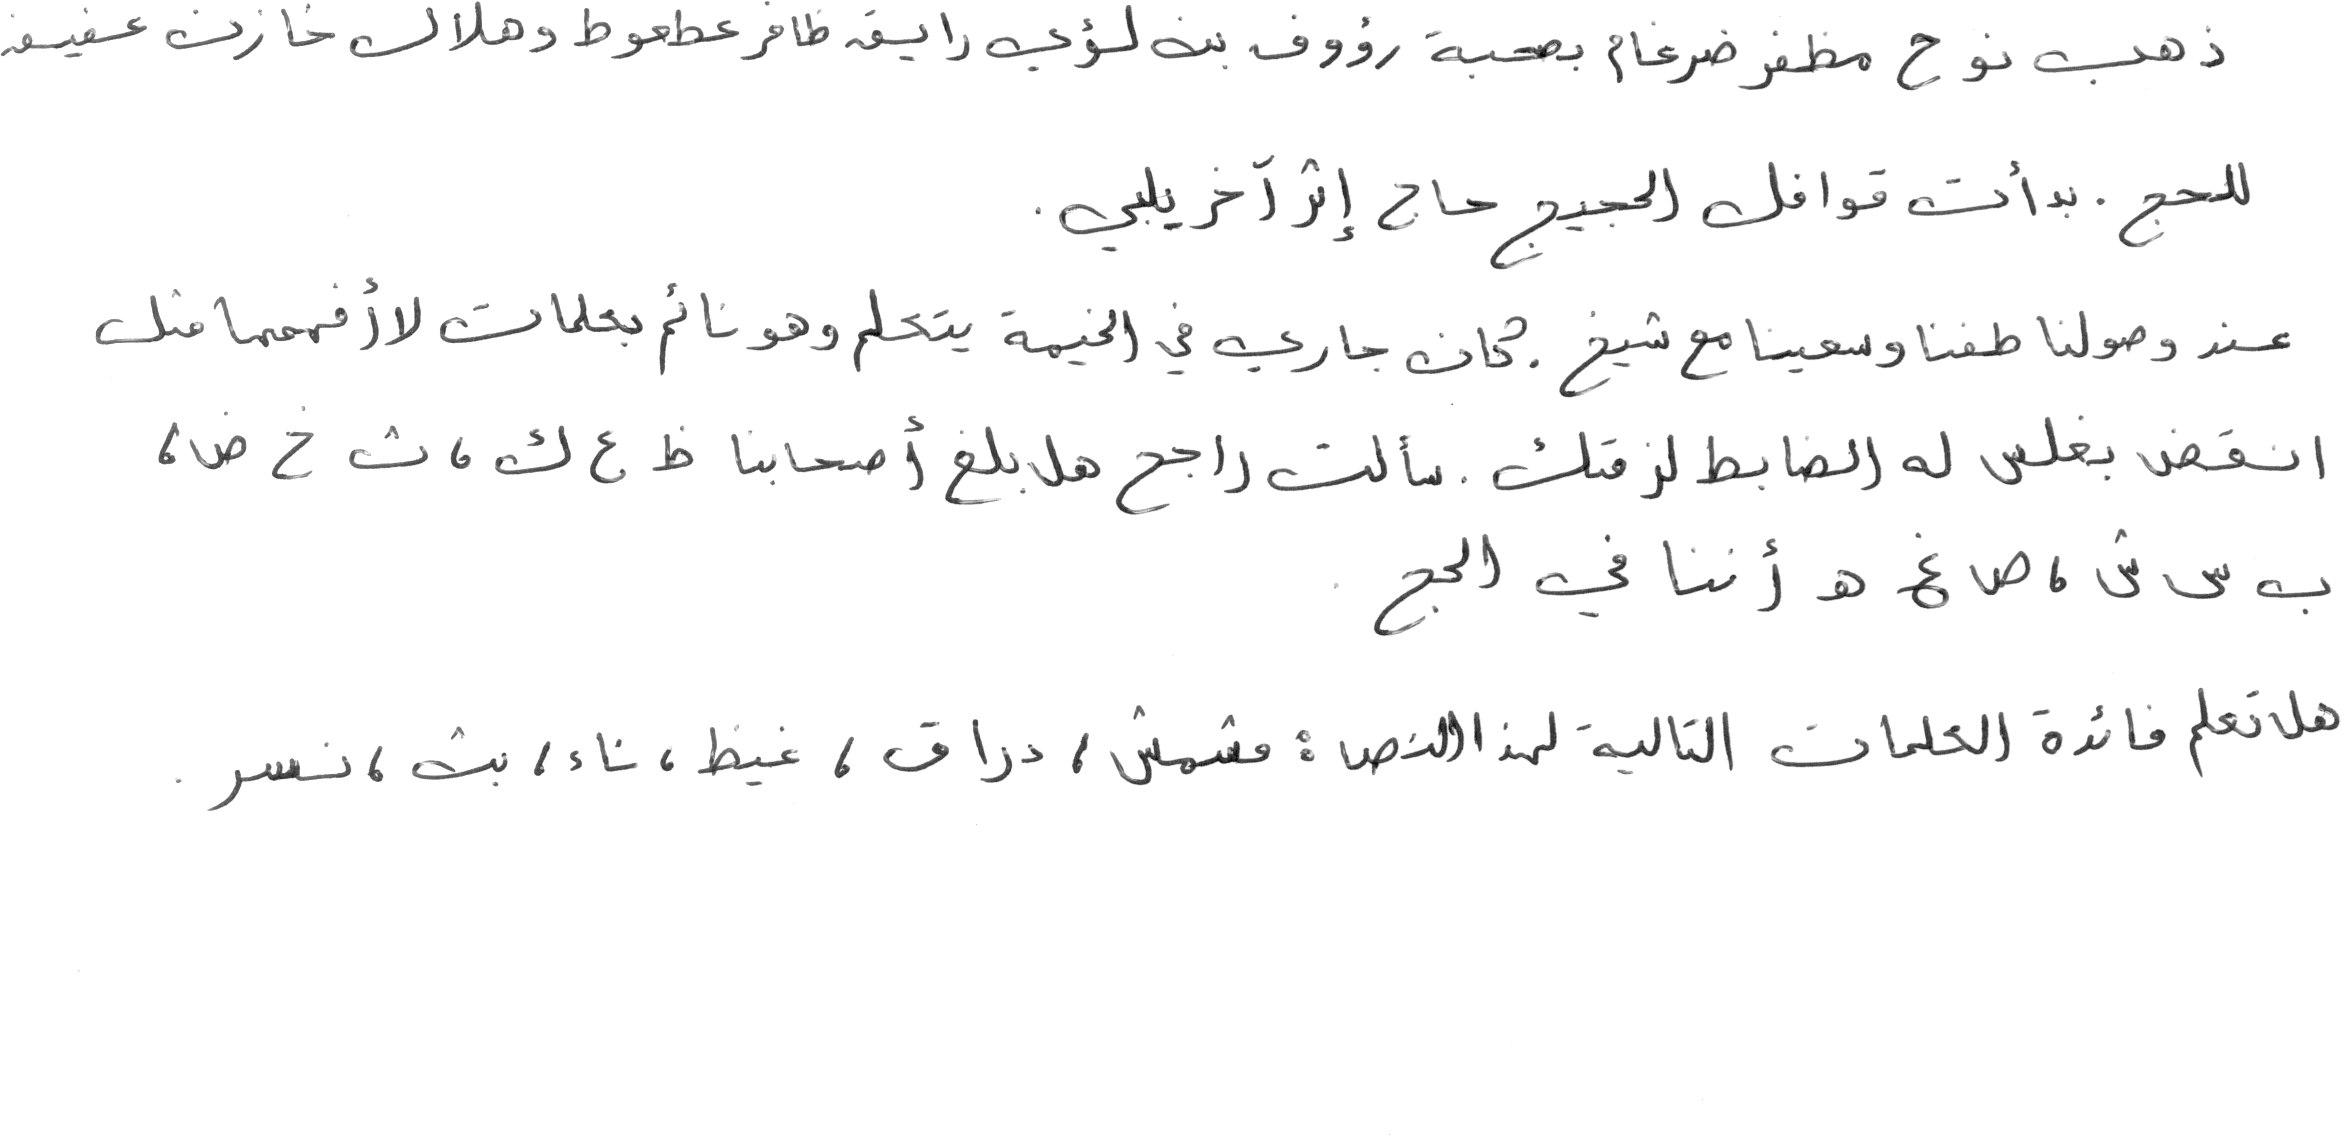 ذهب نوح مظفر ضرغام بصحبة رؤوف بن لؤي رايق ظافر عطعوط وهلال خازن عفيف
للحج . بدأت قوافل الحجيج حاج إثر آخر يلبي .
عند وصولنا طفنا وسعينا مع شيخ . كان جاري في الخيمة يتكلم وهو نائم بكلمات لا أفهمها مثل
انقض بغلس له الضابط لزقتك . سألت راجح هل بلغ أصحابنا ظ ع ك ، ث خ ض ،
ب س ش ، ص غ هـ أننا في الحج .
هل تعلم فائدة الكلمات التالية لهذا النص : مشمش ، دراق ، غيظ ، ناء ، بث ، نسر .